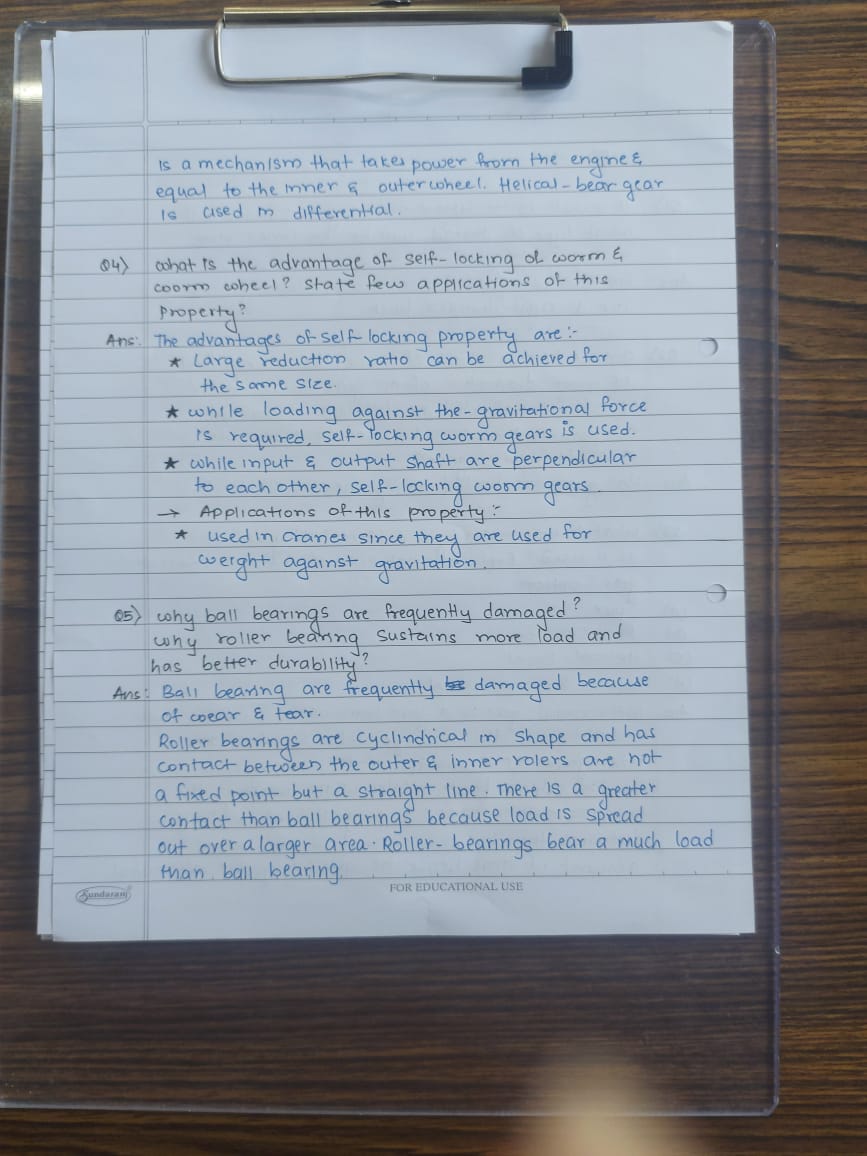 is a mechanism that takes power from the engine &
equal to the inner & outer wheel. Helical-bear gear
is used in differential.
Q4) what is the advantage of self-locking of worm &
worm wheel? State few applications of this
property?
Ans: The advantages of self locking property are:-
★ Large reduction ratio can be achieved for
the same size.
★ while loading against the-gravitational force
is required, self-locking worm gears is used.
★ while input & output shaft are perpendicular
to each other, self-locking worm gears.
→ Applications of this property:-
★ used in cranes since they are used for
weight against gravitation.
Q5) why ball bearings are frequently damaged?
why roller bearing sustains more load and
has better durability?
Ans: Ball bearing are frequently be damaged because
of wear & tear.
Roller bearings are cyclindrical in shape and has
contact between the outer & inner rolers are not
a fixed point but a straight line. There is a greater
contact than ball bearings because load is spread
out over a larger area. Roller-bearings bear a much load
than ball bearing.
Sundaram
FOR EDUCATIONAL USE